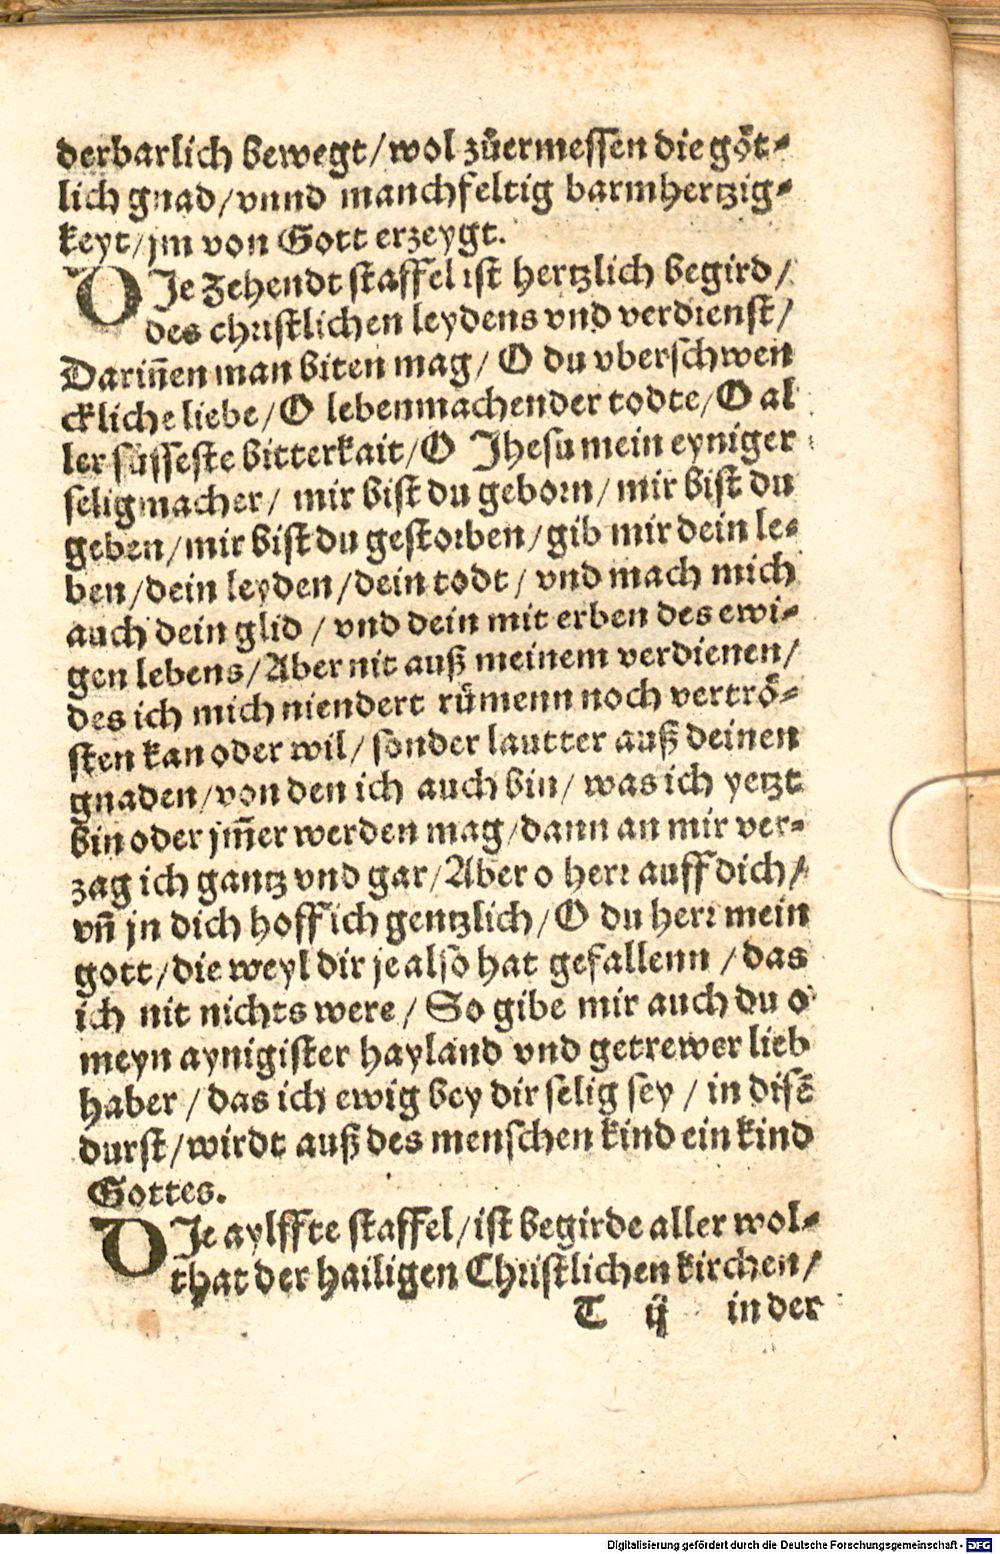 derbarlich bewegt/wol zůermessen die göt⸗
lich gnad/vnnd manchfeltig barmhertzig⸗
keyt/jm von Gott erzeygt.
DIe zehendt staffel ist hertzlich begird/
des christlichen leydens vnd verdienst/
Dariñen man biten mag/ O du vberschwen
ckliche liebe/O lebenmachender todte/O al
ler süsseste bitterkait/O Jhesu mein eyniger
seligmacher/ mir bist du geborn/mir bist du
geben/mir bist du gestorben/gib mir dein le⸗
ben/dein leyden/dein todt/ vnd mach mich
auch dein glid / vnd dein mit erben des ewi⸗
gen lebens/Aber nit auß meinem verdienen/
des ich mich niendert růmenn noch vertrö⸗
sten kan oder wil/ sonder lautter auß deinen
gnaden/von den ich auch bin/ was ich yetzt
bin oder jm̃er werden mag/dann an mir ver⸗
zag ich gantz vnd gar/Aber o herr auff dich/
vñ jn dich hoff ich gentzlich/O du herr mein
gott/die weyl dir je also hat gefallenn /das
ich nit nichts were/ So gibe mir auch du o
meyn aynigister hayland vnd getrewer lieb
haber /das ich ewig bey dir selig sey / in disẽ
durst/wirdt auß des menschen kind ein kind
Gottes.
DIe aylffte staffel/ist begirde aller wol⸗
that der hailigen Christlichen kirchen/
T ij in der
Digitalisierung gefördert durch die Deutsche Forschungsgemeinschaft - DFG